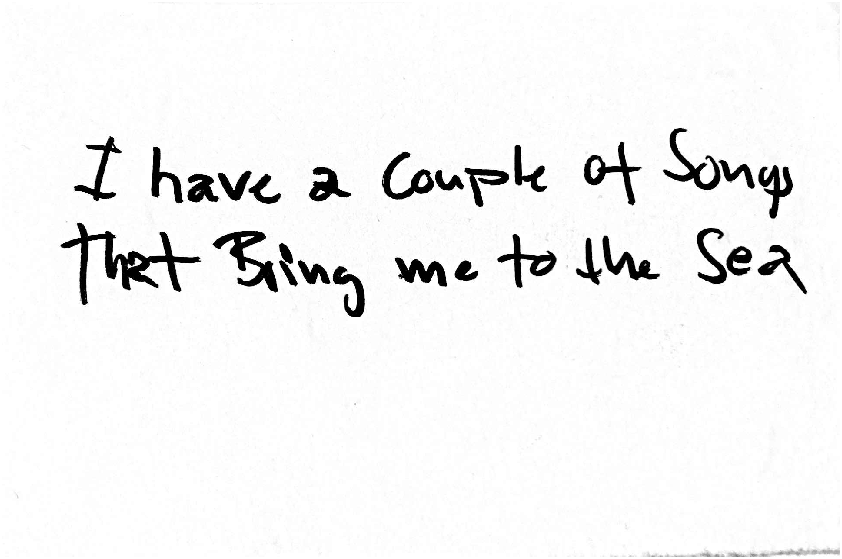 I have a Couple of Songs
That Bring me to the Sea